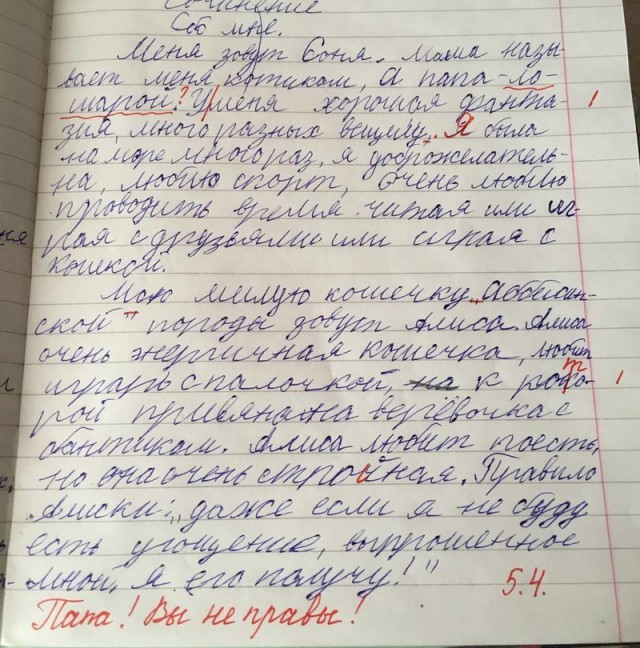 Сочинение
Соб мне.
Меня зовут Соня. Мама назы-
вает меня котиком, а папа-ло-
шарой.? У меня хорошая фанта-
зия, много разных вещиц, Я была
на море много раз, я доброжелатель-
на, люблю спорт, очень люблю
проводить время читая или иг-
рая с друзьями или играя с
кошкой.
Мою милую кошечку „Аббесин-
ской" породы зовут Алиса. Алиса
очень энергичная кошечка, любит
играть с палочкой, на к кото-
рой привязана верёвочка с
бантиком. Алиса любит поесть,
но она очень стройная. Правило
Алиски: „даже если я не буду
есть угощение, выпрошенное
мной, я его получу!"
5.4.
Папа! Вы не правы!